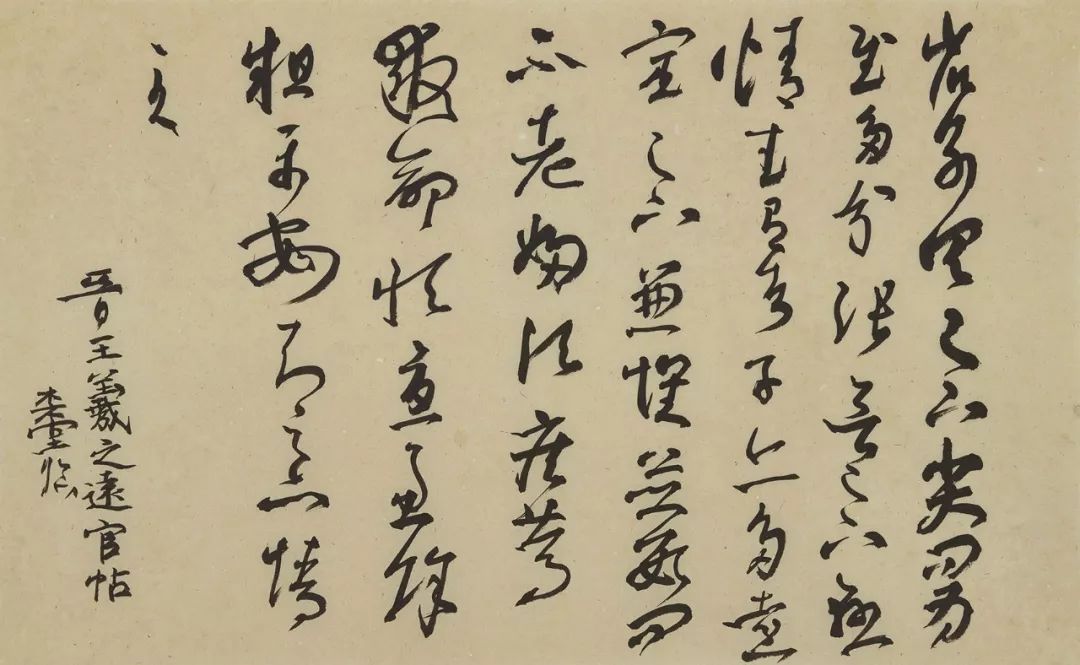 省別具足下小大問為
慰多分張念足下懸
情武昌諸子亦多遠
宦足下兼懷並數問
不老婦頃疾篤
救命恒憂慮餘
粗平安知足下情
至
晉王羲之遠宦帖
堂臨